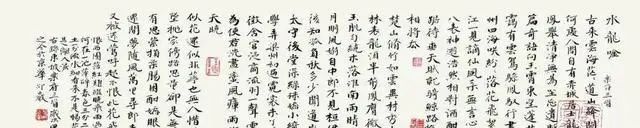 水龍吟
蘇詞三首
古來雲海茫茫道山絳闕知
何處人間自有赤城居士龍蟠
鳳舉清淨無為坐忘遺照八
篇奇語向玉霄東望蓬萊晻
靄有雲駕驂鳳馭行盡九
州四海笑紛紛落花飛絮臨
江一見謫仙風采無言心許
八表神遊浩然相對酒酣箕
踞待垂天賦就騎鯨路穩約
相將去
楚山修竹如雲異材秀出千
林表龍鬚半剪鳳膺微漲
玉肌勻繞木落淮南雨晴雲夢
月明風裊自中郎不見桓伊去
後知孤負秋多少聞道嶺南
太守後堂深綠珠嬌小綺窗
學弄梁州初遍霓裳未了嚼
徵含宮泛商流羽一聲雲杪
為使君洗盡蠻風瘴雨作霜
天曉
似花還似非花也無人惜從教
墜拋家傍路思量卻是無情
有思縈損柔腸困酣嬌眼欲
開還閉夢隨風萬里尋郎去處
又還被鶯呼起不恨此花飛盡
恨西園落紅難綴曉來雨過遺蹤
何在一池萍碎春色三分二分塵
土一分流水細看來不是楊花點點
是離人淚